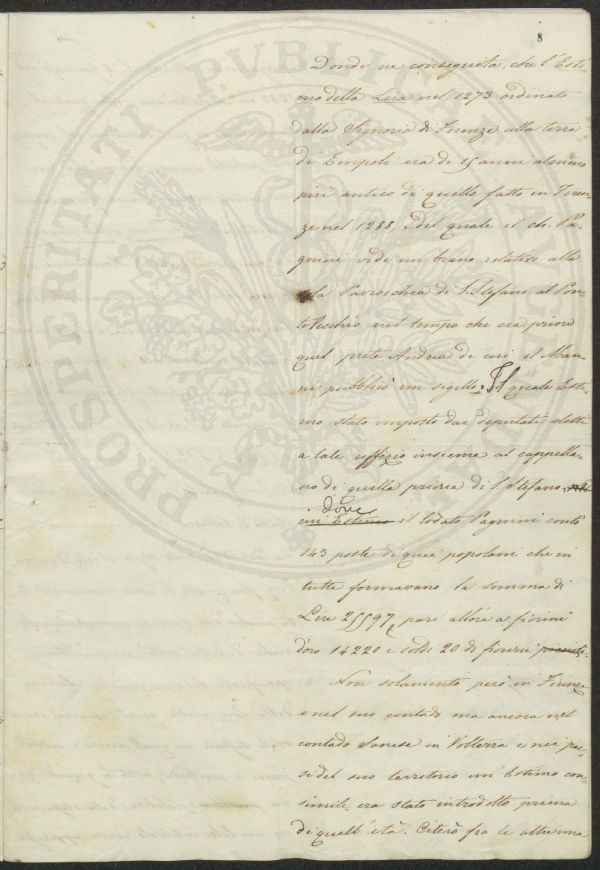 8
Donde ne conseguita, che l'Esti-
mo della Lira nel 1273 ordinato
dalla Signoria di Firenze alla terra
di Empoli era di 15 anni almeno
più antico di quello fatto in Firen-
ze nel 1288, del quale il ch. Pa-
gnini vide un brano relativo alla
la Parrocchia di S. Stefano al Pon-
te Vecchio nel tempo che era priore
quel prete Andrea di cui il Man-
ni pubblicò un sigillo. Il quale Esti-
mo stato imposto dai Deputati eletti
a tale uffizio insieme al cappella-
no di quella prioria di S. Stefano,
dove
cui Estimo il lodato Pagnini contò
143 poste di quei popolani che in
tutte formavano la somma di
Lire 25597, pari allora a fiorini
d'oro 14220 e soldi 20 di fiorini
Non solamente però in Firenze
e nel suo contado ma ancora nel
contado Sanese in Volterra e nei pae-
si del suo territorio un Estimo con-
simile era stato introdotto prima
di quell'età. Citerò fra le altre una
PROSPERITATI PVBLICAE AVGENDAE